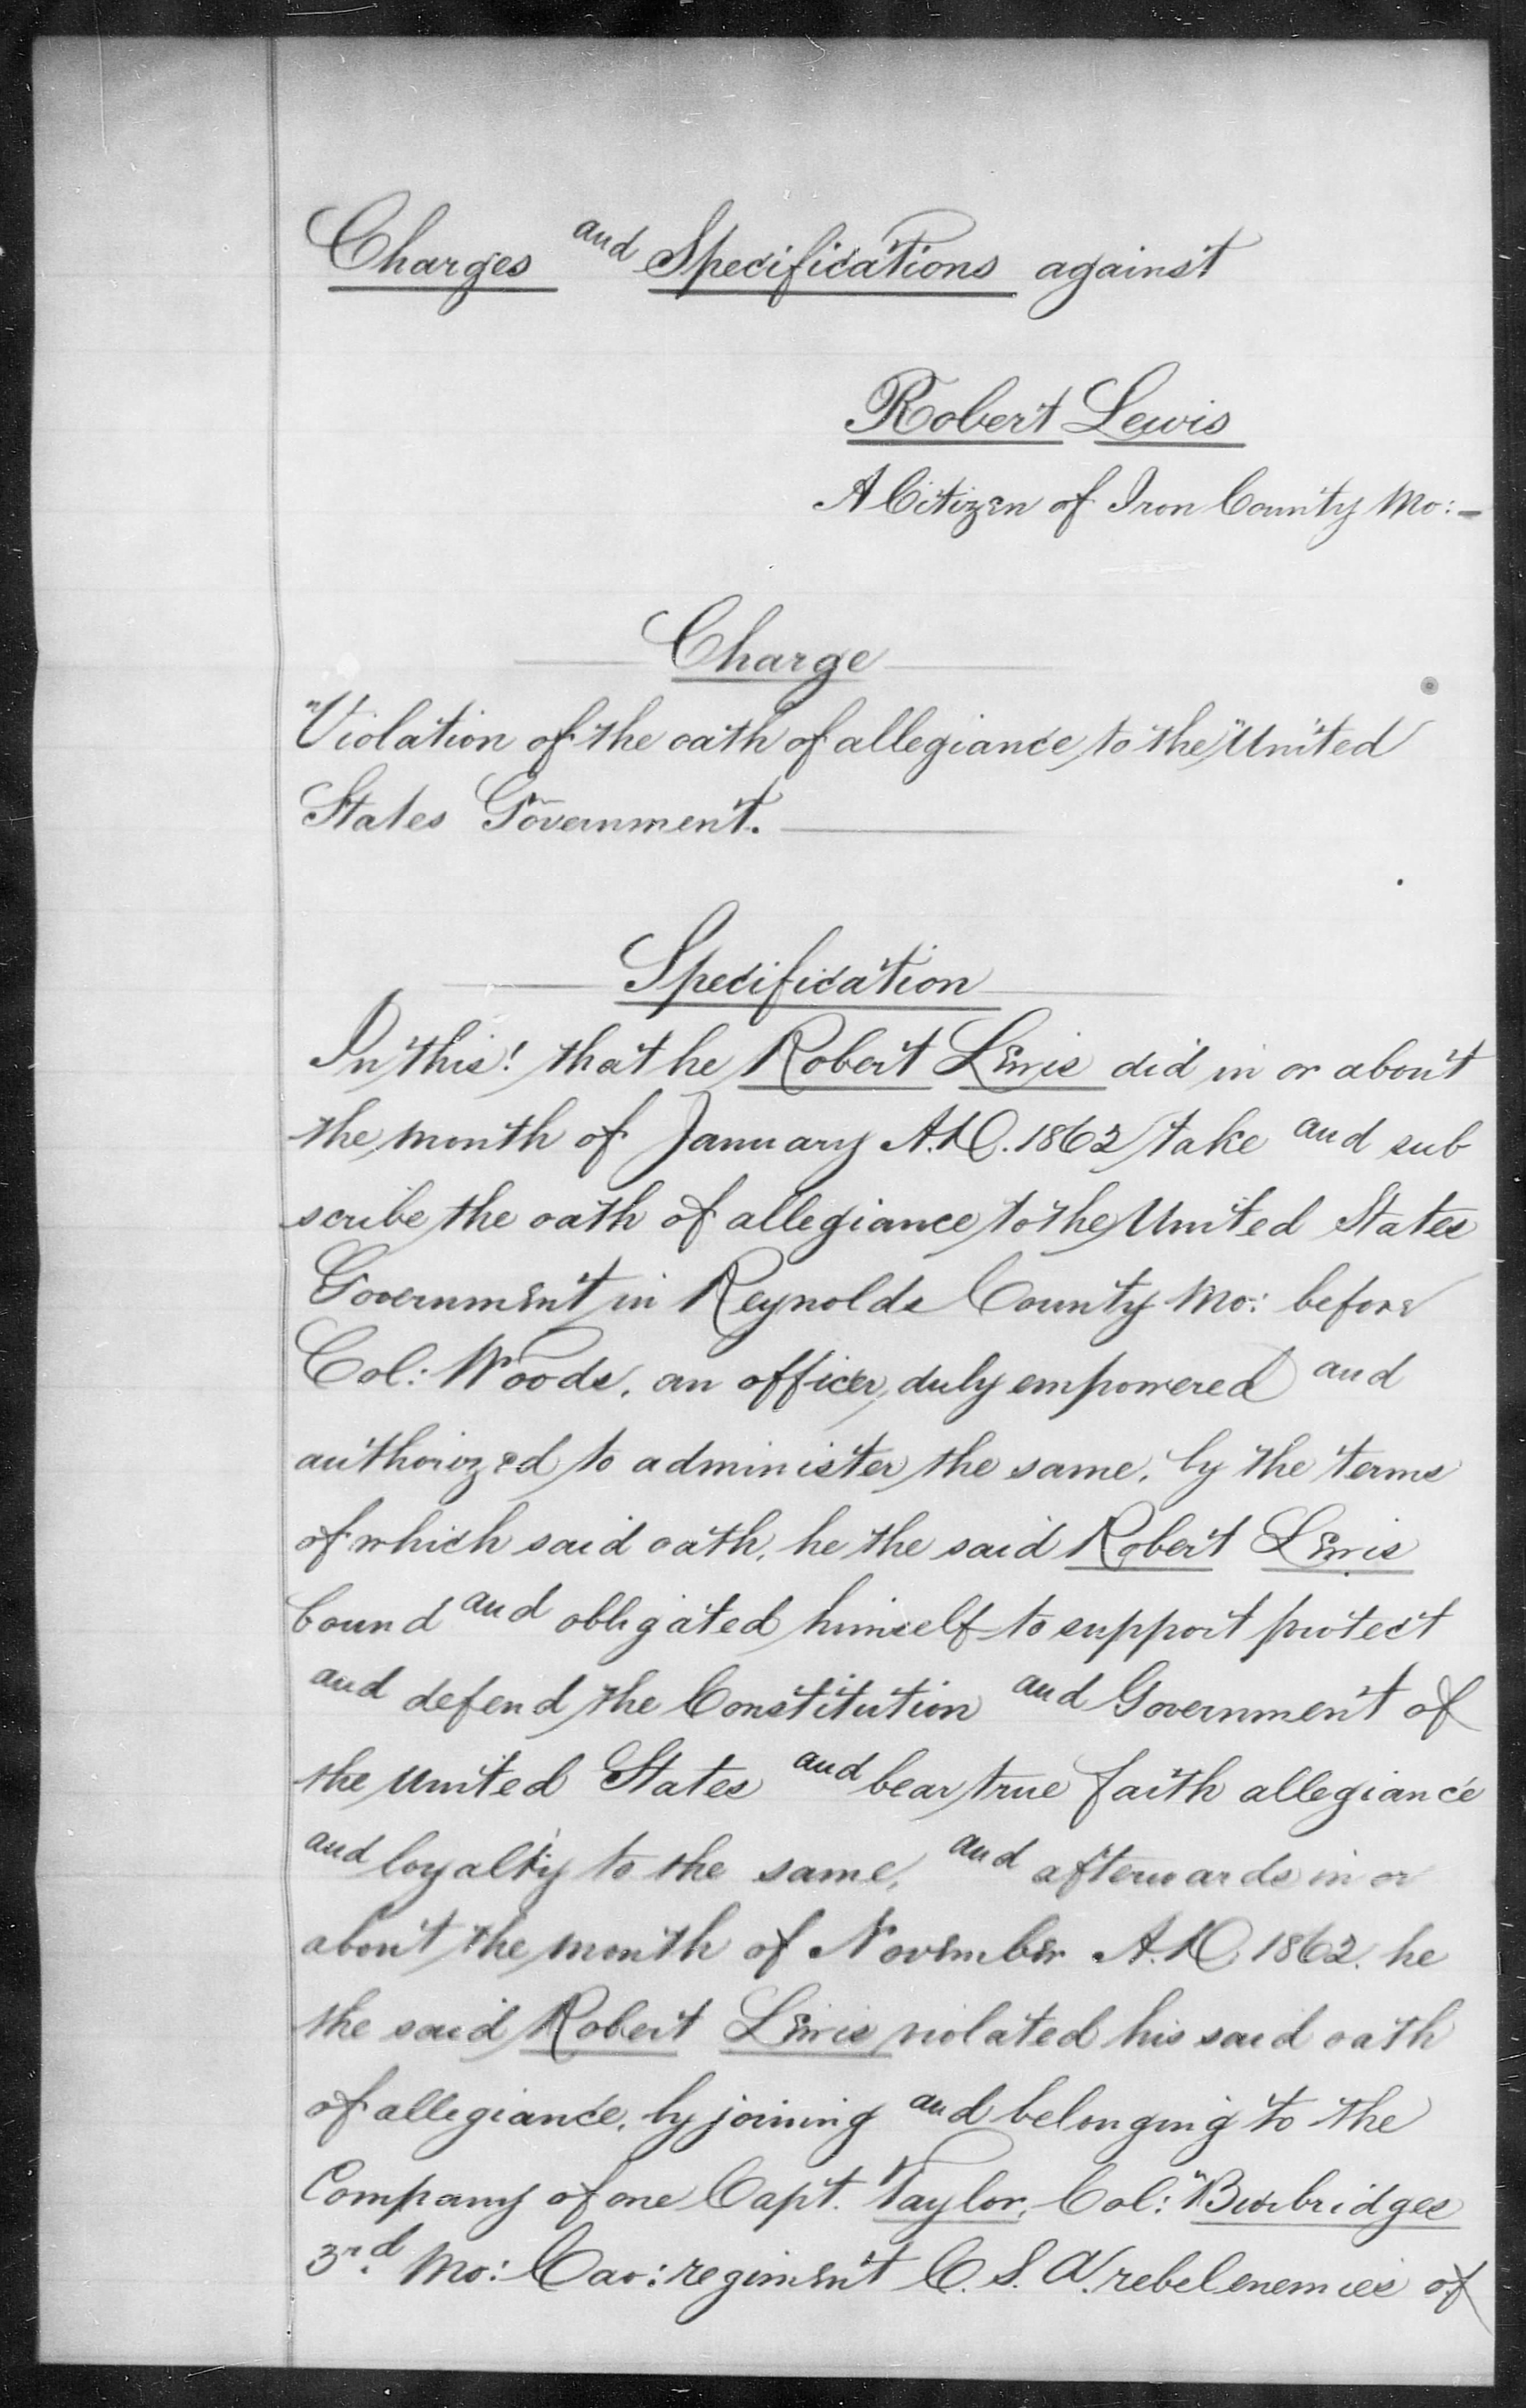 Charges and Specifications against
Robert Lewis
A Citizen of Iron County Mo:-
Charge
"Violation of the oath of allegiance to the United
States Government.
Specification
In this! that he Robert Lewis did in or about
the month of January A.D. 1862 take and sub
scribe the oath of allegiance to the United States
Government in Reynolds County Mo: before
Col: Woods, an officer, duly empowered and
authorized to administer the same, by the terms
of which said oath, he the said Robert Lewis
bound and obligated himself to support protect
and defend the Constitution and Government of
the United States and bear true faith allegiance
and loyalty to the same, and afterwards in or
about the month of November A.D. 1862. he
the said Robert Lewis violated his said oath
of allegiance, by joining and belonging to the
Company of one Capt. Taylor, Col: Burbridges
3rd. Mo: Cav: regiment C. S. A. rebel enemies of